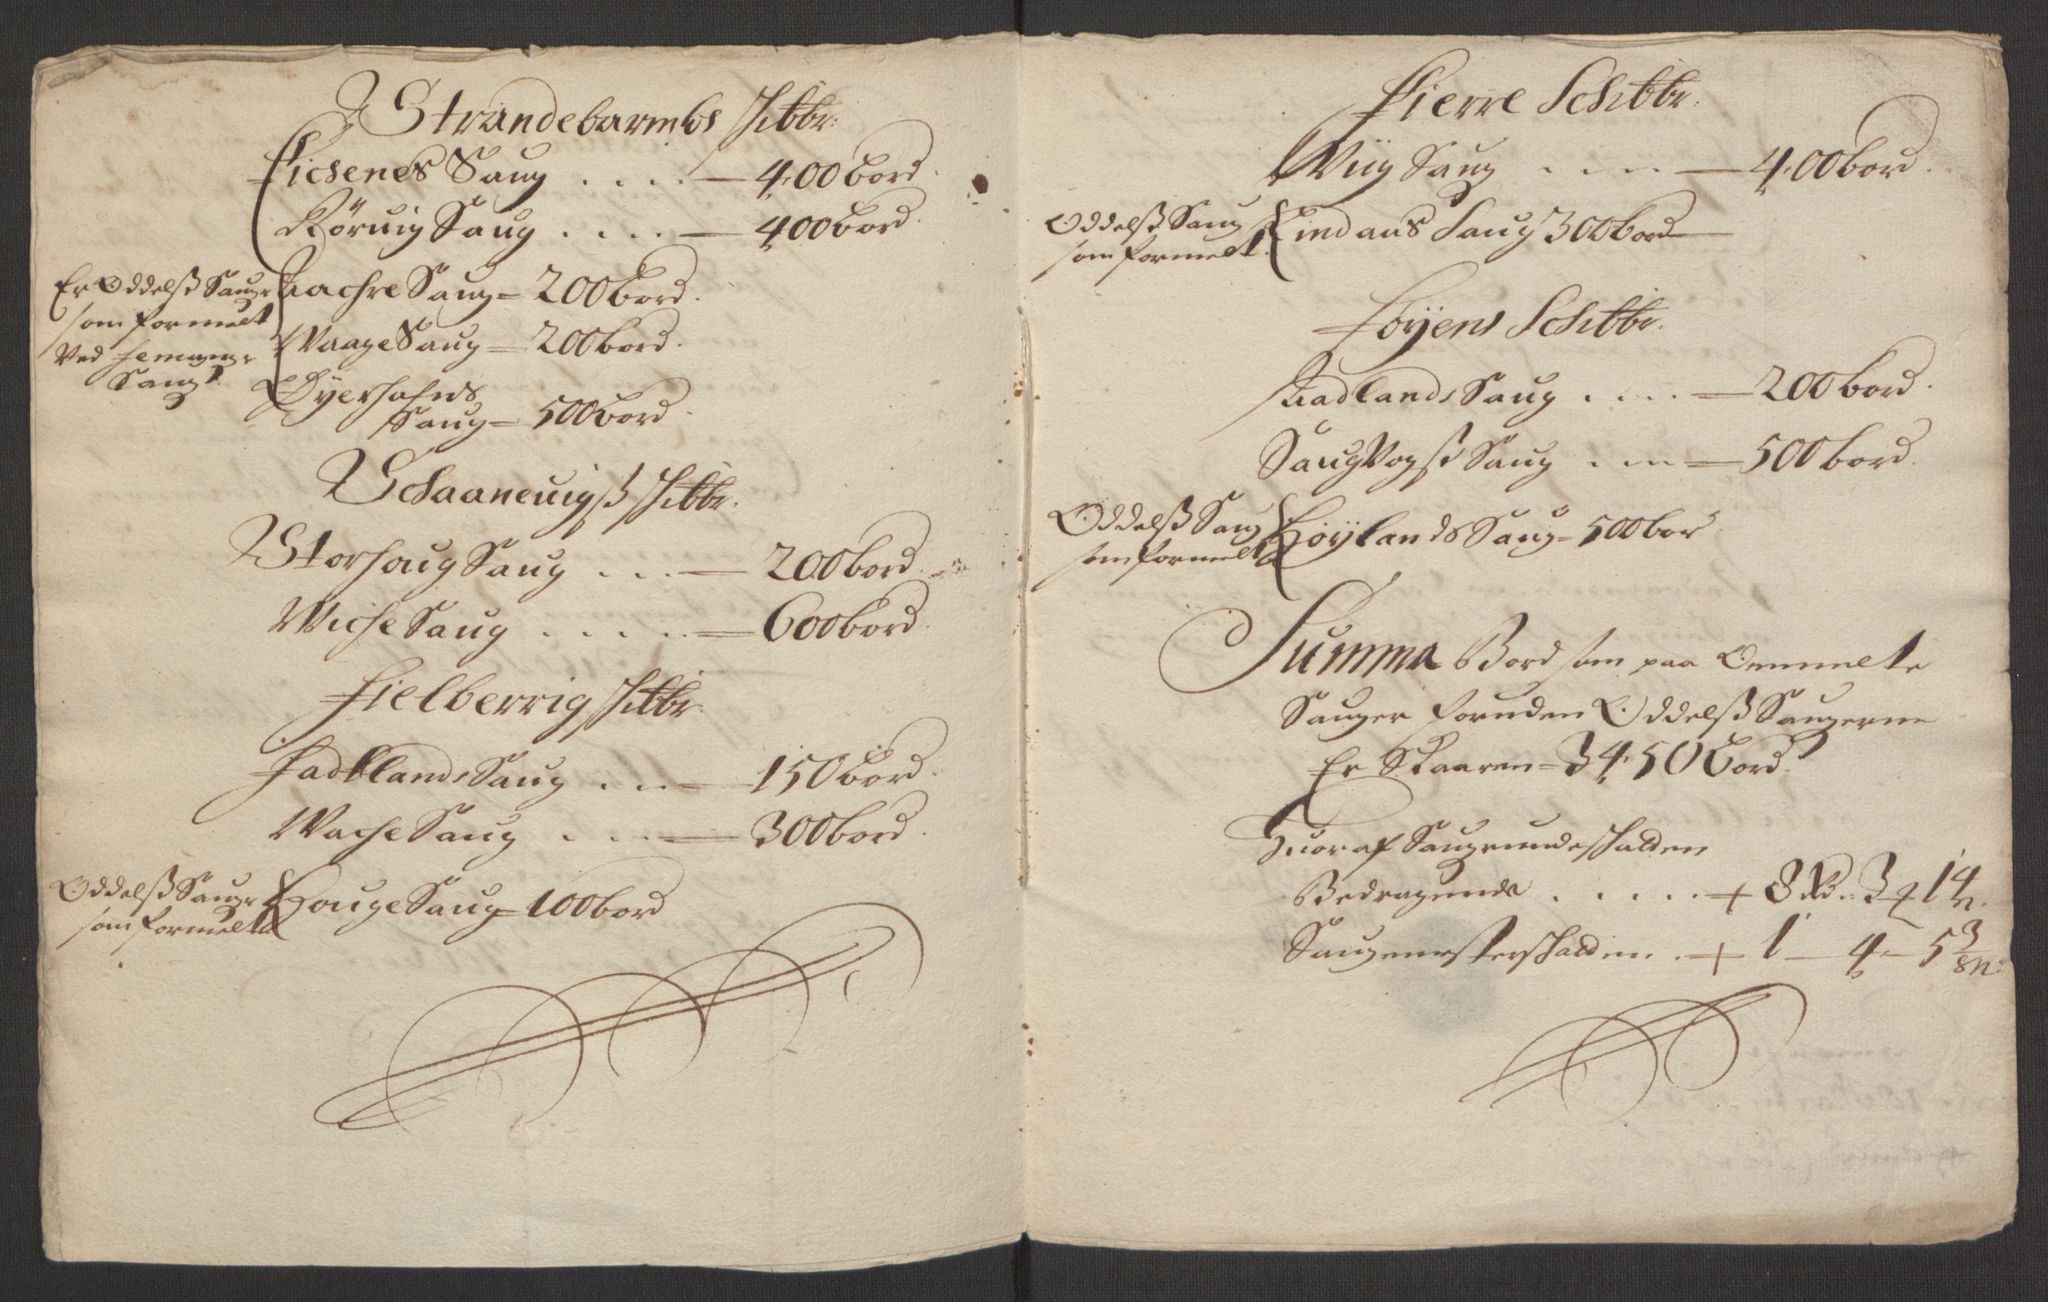 Strandebarmbs Schibbr:
Eichenes Saug .... 400 bord.
Röruig Saug .... 400 bord.
Er Oddelsß Saugr
som formelt
Aachre Saug = 200 bord.
Waage Saug = 200 bord.
Ved
Saug
Øyerhafns
Saug = 500 bord.
Schaaneuigß Schibbr.
Storhoug Saug .... 200 bord.
Wiche Saug ..... 600 bord.
Fielberrig Schibbr.
Fadtlands Saug ... 150 bord.
Wache Saug .... 300 bord.
Oddelsß Saugr
som formelt
Houge Saug = 100 bord
Fierre Schibbr.
Wiig Saug .... 400 bord.
Oddelsß Saug
som formelt.
Eindaus Saug 300 bord
Føyens Schibbr.
Aadlands Saug .... 200 bord.
Saug Vogsß Saug ... 500 bord.
Oddelsß Saug
som formelt
Høylands Saug = 500 bor
Summa Bord som paa Ommelte
Sauger foruden Oddelsß Saugerne
Er Skaaren = 3450 Bord.
Huoraf Saugrundeschatten
Bedragende ..... + 8 Rd. 3 ʒ 14
Saugmesterschatten . + 1 - 4 - 5 3/8